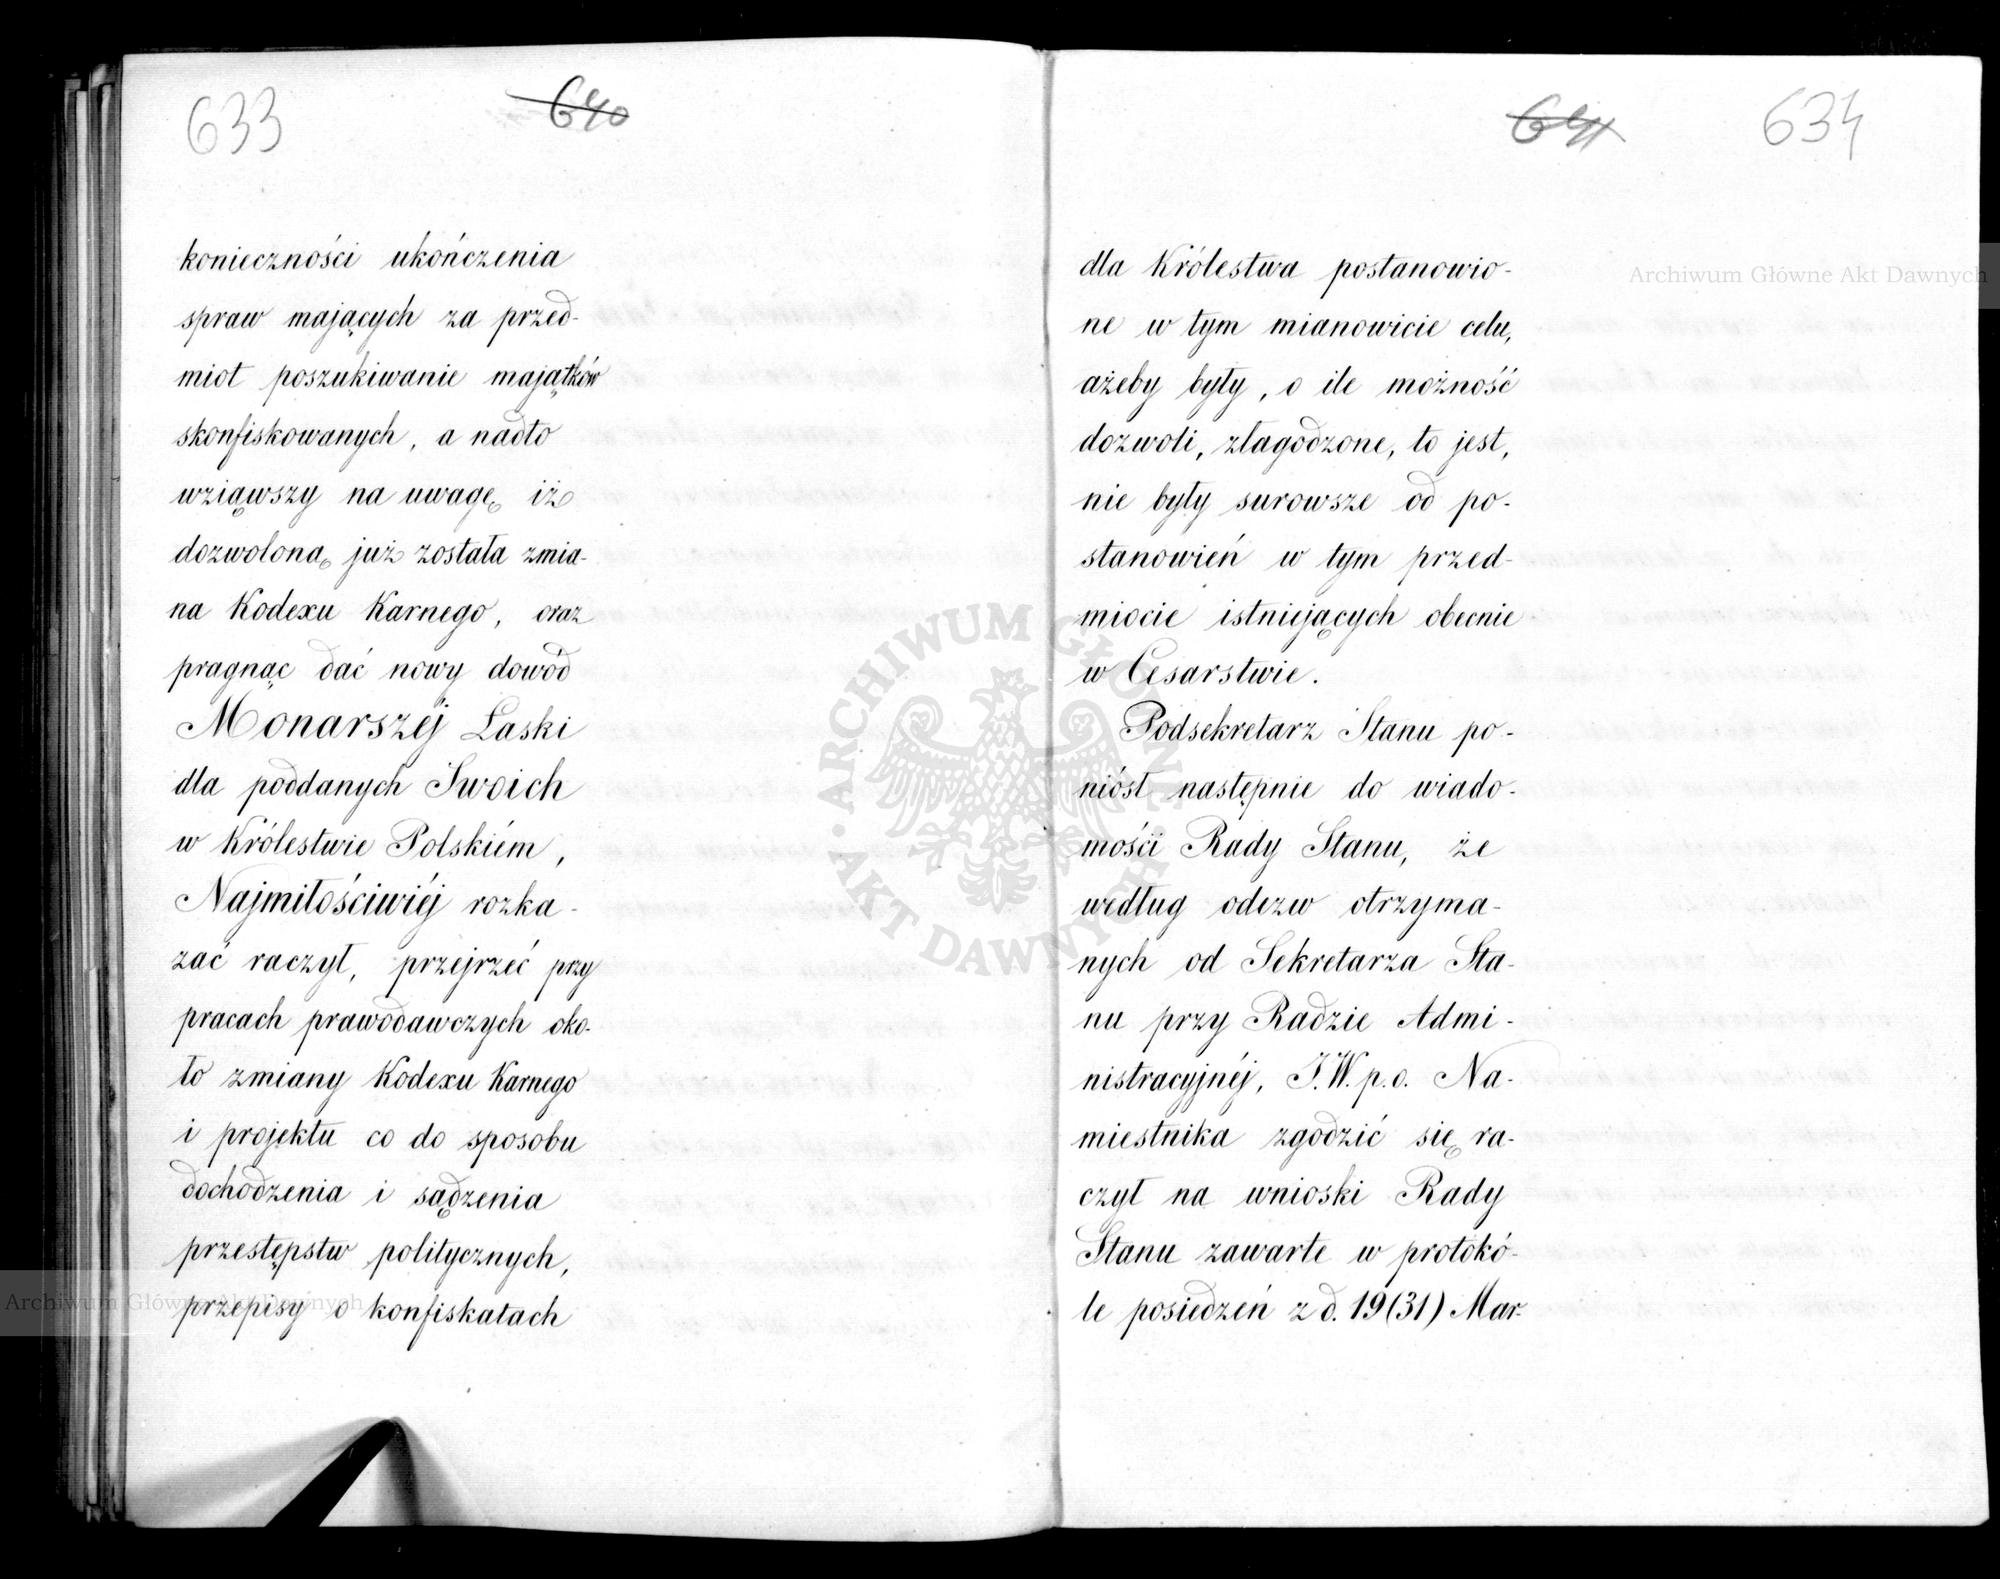 633
640
konieczności ukończenia
spraw mających za przed-
miot poszukiwanie majątków
skonfiskowanych, a nadto
wziąwszy na uwagę iż
dozwoloną już została zmia-
na Kodexu Karnego, oraz
pragnąc dać nowy dowód
Monarszéj Łaski
dla poddanych Swoich
w Królestwie Polskiém,
Najmiłościwiéj rozka-
zać raczył, przejrzeć przy
pracach prawodawczych oko-
ło zmiany Kodexu Karnego
i projektu co do sposobu
dochodzenia i sądzenia
przestępstw politycznych,
przepisy o konfiskatach
641
634
dla Królestwa postanowio-
ne w tym mianowicie celu,
ażeby były, o ile możność
dozwoli, złagodzone, to jest,
nie były surowsze od po-
stanowień w tym przed-
miocie istniejących obecnie
w Cesarstwie.
Podsekretarz Stanu po-
niósł następnie do wiado-
mości Rady Stanu, że
według odezw otrzyma-
nych od Sekretarza Sta-
nu przy Radzie Admi-
nistracyjnéj, J.W. p.o. Na-
miestnika zgodzić się ra-
czył na wnioski Rady
Stanu zawarte w protokó-
le posiedzeń z d. 19 (31) Mar-
Archiwum Główne Akt Dawnych
Archiwum Główne Akt Dawnych
ARCHIWUM GŁÓWNE • AKT DAWNYCH •